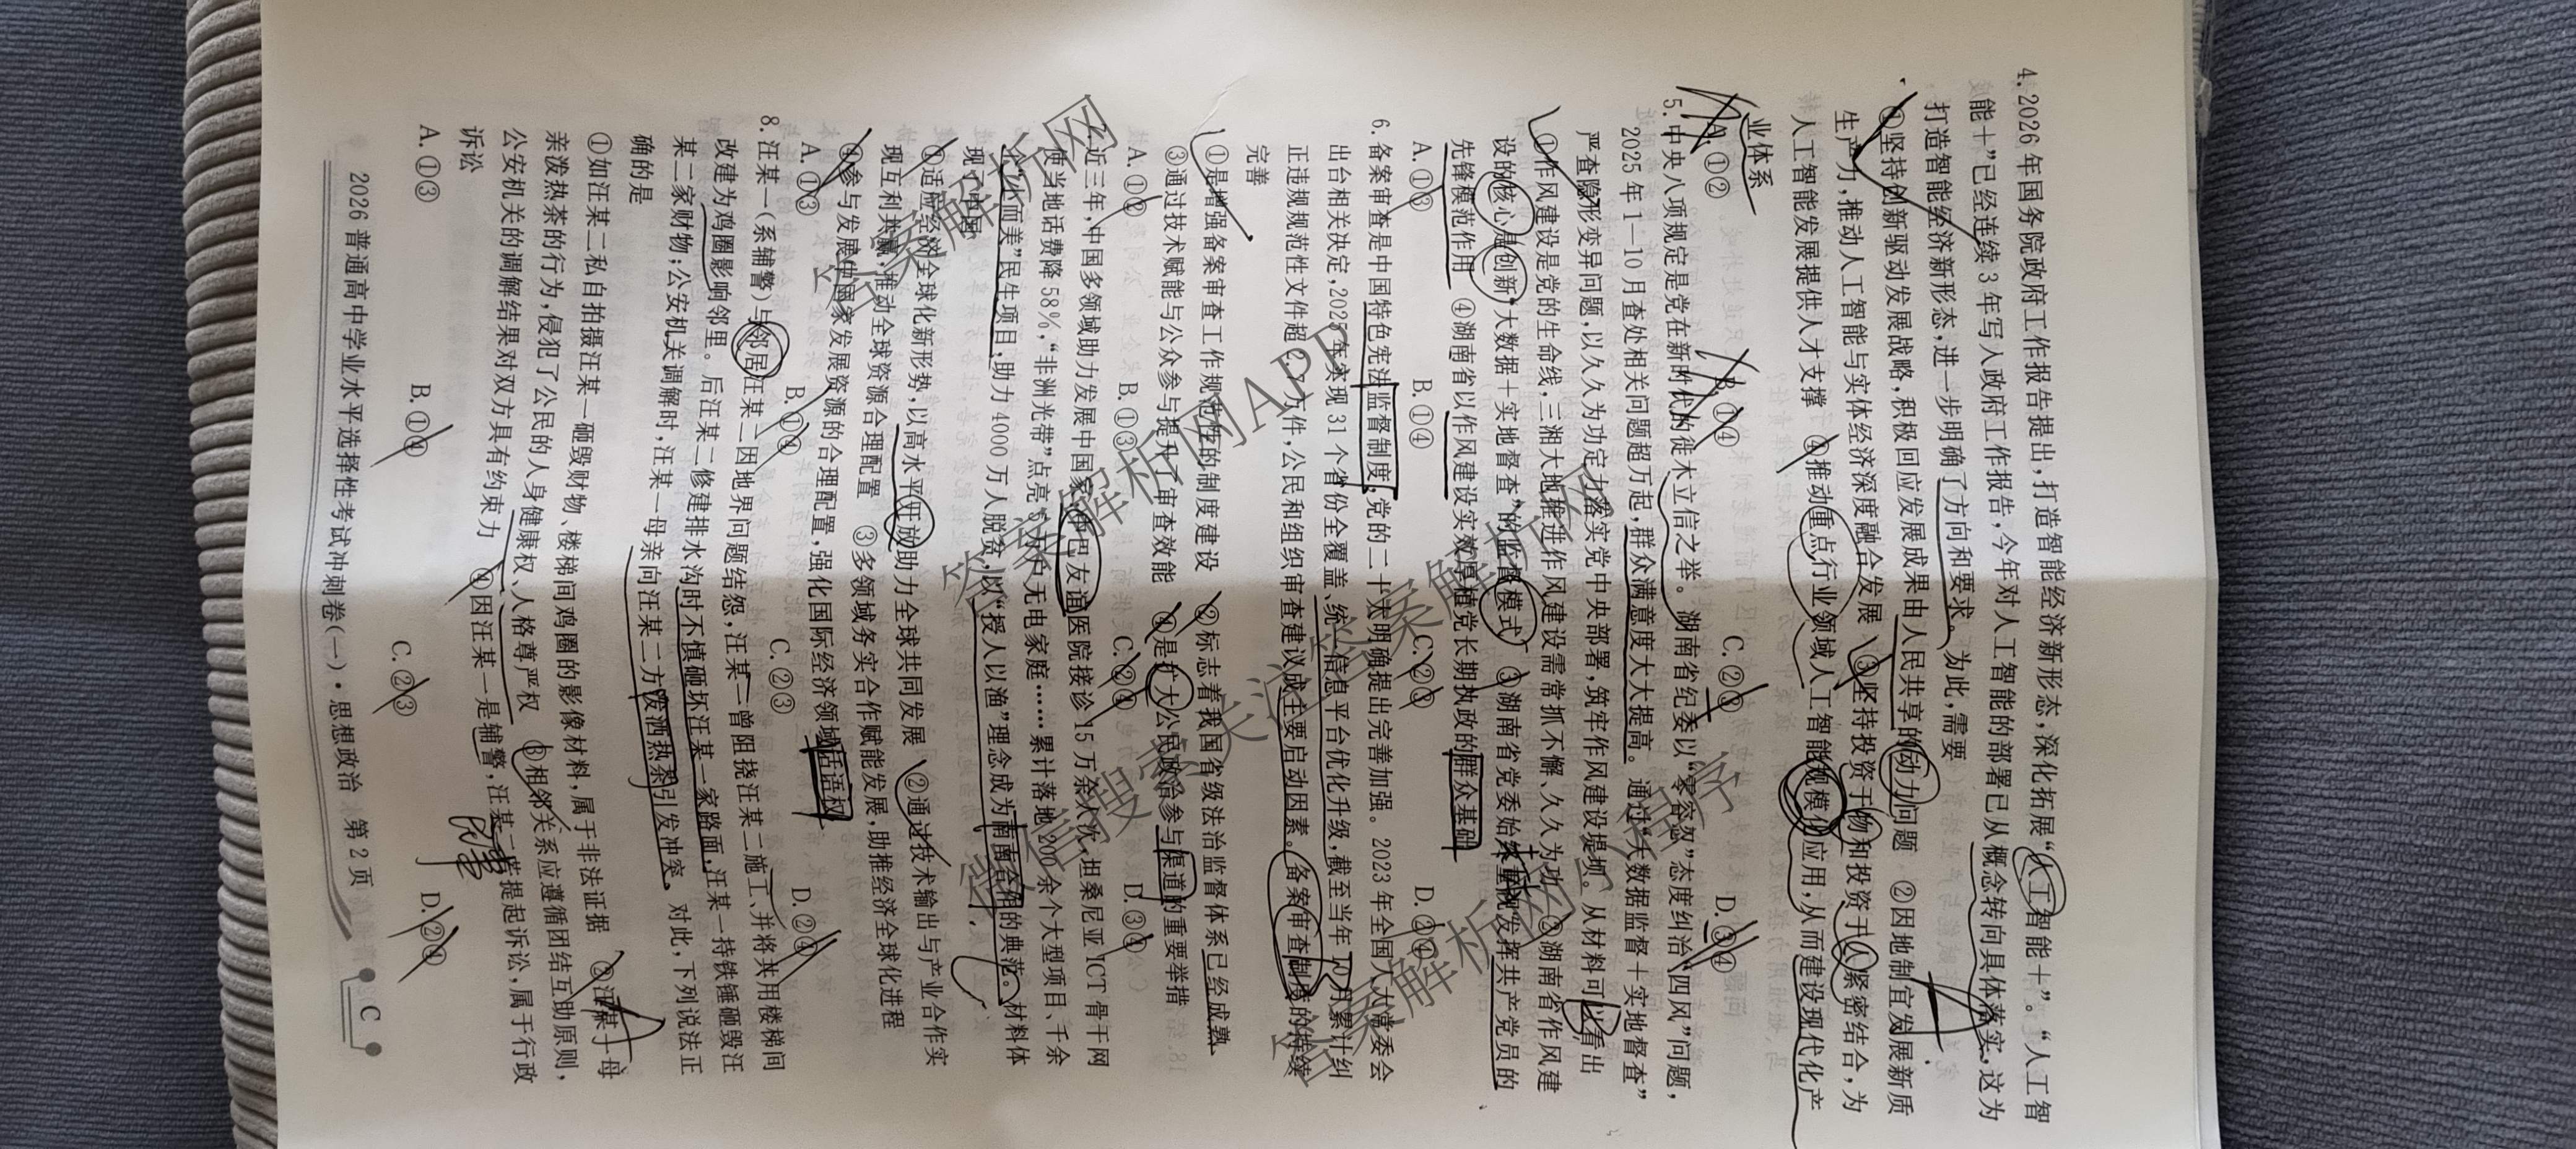 4. 2026年国务院政府工作报告提出,打造智能经济新形态,深化拓展“人工智能+”。“人工智
能+”已经连续3年写入政府工作报告,今年对人工智能的部署已从概念转向具体落实,这为
打造智能经济新形态,进一步明确了方向和要求。为此,需要
①坚持创新驱动发展战略,积极回应发展成果由人民共享的动力问题 ②因地制宜发展新质
生产力,推动人工智能与实体经济深度融合发展 ③坚持投资于物和投资于人紧密结合,为
人工智能发展提供人才支撑 ④推动重点行业领域人工智能规模化应用,从而建设现代化产
业体系
A.①② B.①④ C.②③ D.③④
5. 中央八项规定是党在新时代的徙木立信之举。湖南省纪委以“零容忍”态度纠治“四风”问题,
2025年1—10月查处相关问题超万起,群众满意度大大提高。通过“大数据监督+实地督查”
严查隐形变异问题,以久久为功定力落实党中央部署,筑牢作风建设堤坝。从材料可以看出
①作风建设是党的生命线,三湘大地推进作风建设需常抓不懈、久久为功 ②湖南省作风建
设的核心是创新“大数据+实地督查”的监督模式 ③湖南省党委始终重视发挥共产党员的
先锋模范作用 ④湖南省以作风建设实效厚植党长期执政的群众基础
A.①③ B.①④ C.②③ D.②④
6. 备案审查是中国特色宪法监督制度,党的二十大明确提出完善加强。2023年全国人大常委会
出台相关决定,2025年实现31个省份全覆盖、统一信息平台优化升级,截至当年10月累计纠
正违规规范性文件超2.7万件,公民和组织审查建议成主要启动因素。备案审查制度的持续
完善
①是增强备案审查工作规范性的制度建设 ②标志着我国省级法治监督体系已经成熟
③通过技术赋能与公众参与提升了审查效能 ④是扩大公民政治参与渠道的重要举措
A.①② B.①③ C.②④ D.③④
近三年,中国多领域助力发展中国家:中巴友谊医院接诊15万余人次,坦桑尼亚ICT骨干网
使当地话费降58%,“非洲光带”点亮5万户无电家庭……累计落地200余个大型项目、千余
个“小而美”民生项目,助力4000万人脱贫,以“授人以渔”理念成为南南合作的典范。材料体
现了中国
①适应经济全球化新形势,以高水平开放助力全球共同发展 ②通过技术输出与产业合作实
现互利共赢,推动全球资源合理配置 ③多领域务实合作赋能发展,助推经济全球化进程
④参与发展中国家发展资源的合理配置,强化国际经济领域话语权
A.①③ B.①④ C.②③ D.②④
8. 汪某一(系辅警)与邻居汪某二因地界问题结怨,汪某一曾阻挠汪某二施工、并将共用楼梯间
改建为鸡圈影响邻里。后汪某二修建排水沟时不慎砸坏汪某一家路面,汪某一持铁锤砸毁汪
某二家财物;公安机关调解时,汪某一母亲向汪某二方泼洒热茶引发冲突。对此,下列说法正
确的是
①如汪某二私自拍摄汪某一砸毁财物、楼梯间鸡圈的影像材料,属于非法证据 ②汪某一母
亲泼热茶的行为,侵犯了公民的人身健康权、人格尊严权 ③相邻关系应遵循团结互助原则,
公安机关的调解结果对双方具有约束力 ④因汪某一是辅警,汪某二若提起诉讼,属于行政
诉讼
A.①③ B.①④ C.②③ D.②④
2026普通高中学业水平选择性考试冲刺卷(一)·思想政治 第2页 C
答案解析网
答案解析网APP
答案解析网
答案解析网